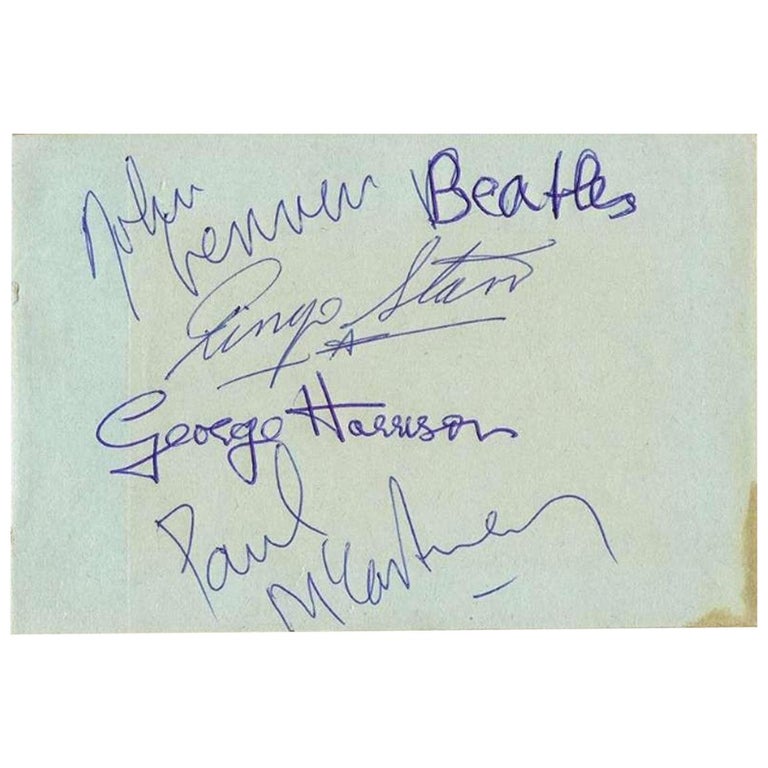 John Lennon Beatles
Ringo Starr
George Harrison
Paul McCartney